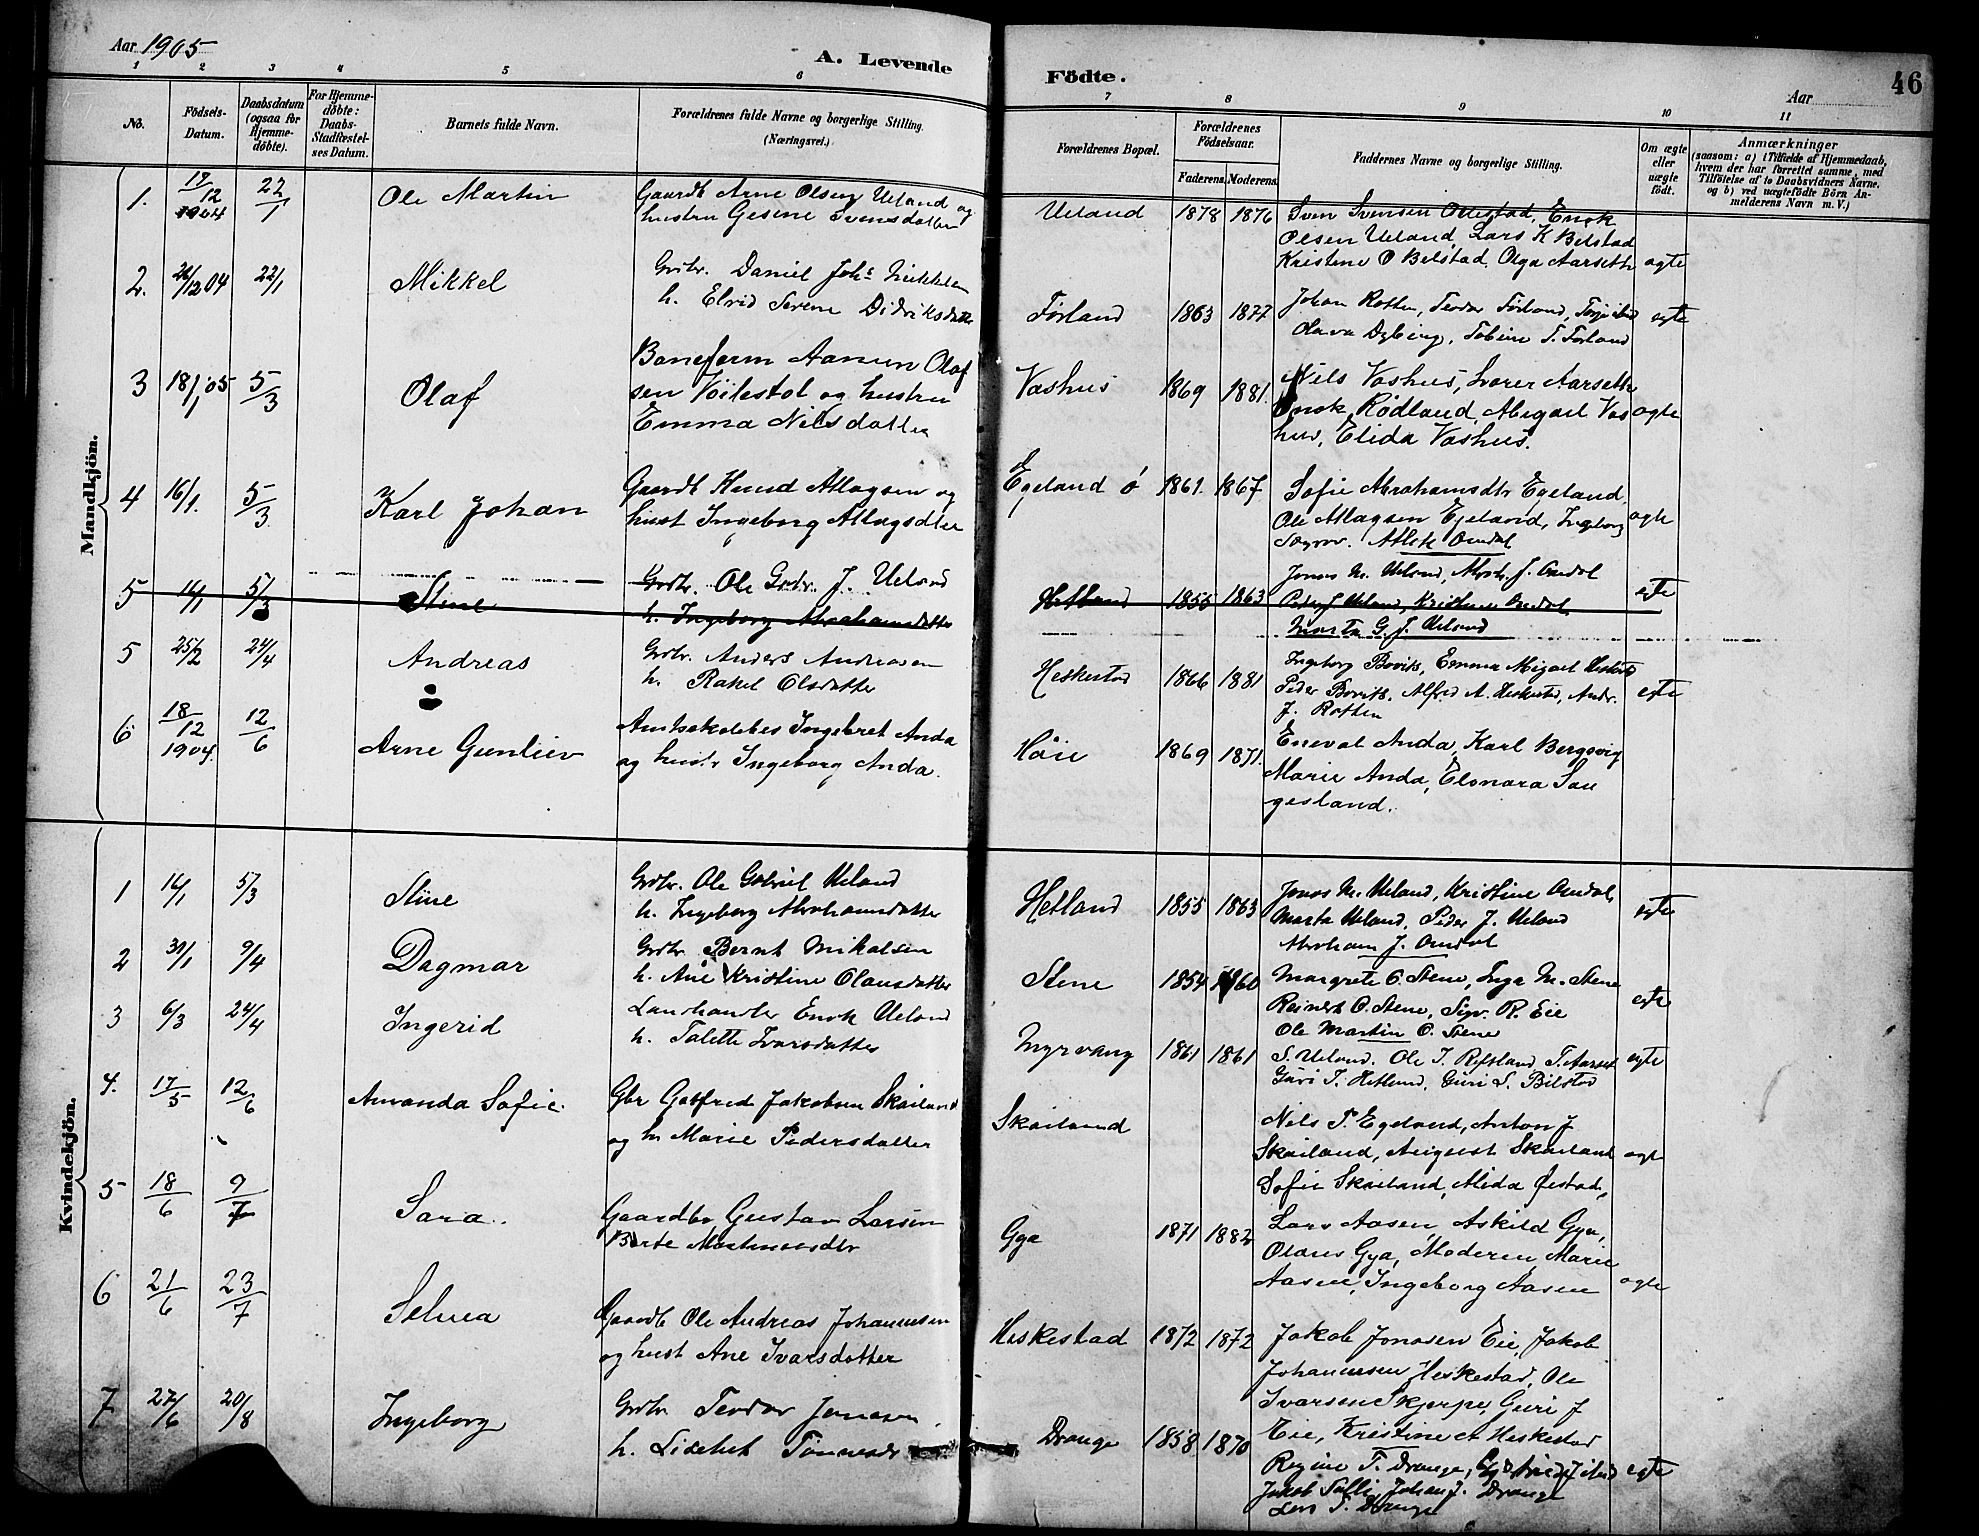 Aar 1905
A. Levende
Födte.
Aar
46
1 2 3 4 5 6 7 8 9 10 11
No.
Födsels-Datum.
Daabsdatum (ogsaa for Hjemme-döbte).
For Hjemme-döbte: Daabs-Stadfæstel-ses Datum.
Barnets fulde Navn.
Forældrenes fulde Navne og borgerlige Stilling.
(Næringsvei.)
Forældrenes Bopæl.
Forældrenes Födselsaar.
Faderens. Moderens.
Faddernes Navne og borgerlige Stilling.
Om ægte eller uægte födt.
Anmærkninger
(saasom: a) i Tilfælde af Hjemmedaab,
hvem der har forrettet samme, med
Tilföielse af to Daabsvidners Navne,
og b) ved uægtefödte Börn An-
melderens Navn m. V.)
Mandkjön.
1. 17/12 1904 22/1 Ole Martin
Gaardb Arne Olsen Ueland og
hustru Gesine Svensdatter
Ueland 1878 1876
Sven Svensen Ollestad, Enok
Olsen Ueland, Lars K Bilstad
Kristine O Bilstad, Olga Aarseth ægte
2. 26/12 04 22/1 Mikkel
Grdbr. Daniel Johs Mikkelsen
h. Elvid Serene Didriksdatter
Førland 1863 1877
Johan Rotten, Teodor Førland,
Olava Dybing, Tobine T. Førland
egte
3 18/1 05 5/3 Olaf
Baneform Aanen Olaf
sen Voilestol og hustru
Emma Nilsdatter
Vashus 1869 1881.
Nils Vashus, Aarseth
Enok Rødland, Abigael Vas
hus, Elida Vashus.
ægte
4 16/1. 5/3 Karl Johan
Gaardb Knud Atlagsen og
hust Ingeborg Atlagsdter
Egeland ø 1861. 1867
Sofie Abrahamsdtr Egeland,
Ole Atlagsen Egeland, Ingeborg
Atlek Omdal
ægte
5 14/1 5/3 Stine
Grdbr. Ole Gabr. J. Ueland
h. Ingeborg Abrahamsdatter
Hetland 1855 1863
Jonas M. Ueland, Abrh. J. Omdal
Peder J. Ueland, Kristine Omdal,
Marta G. J. Ueland
egte
5 25/2 24/4 Andreas
Grdbr. Anders Andreasen
h. Rakel Olsdatter
Heskestad 1866 1881
Ingeborg Bovik, Emma Abigael Heskestad
Peder Bovik, Alfred A. Heskestad, Andr.
J. Rotten
egte
6 18/12 1904. 12/6 Arne Gunliev
Amtsskolebes Ingebret Anda
og hustr Ingeborg Anda.
Høie 1869 1871.
Eneval Anda, Karl Bergsvig
Marie Anda, Elonara Sau
gesland.
Kvindekjön.
1 14/1 5/3 Stine
Grdbr. Ole Gabriel Ueland
h. Ingeborg Abrahamsdatter
Hetland 1855 1863
Jonas M. Ueland, Kristine Omdal,
Marta Ueland, Peder J. Ueland
Abraham J. Omdal
egte
2 31/1 9/4 Dagmar
Grdbr Bernt Mikalsen
h. Ane Kristine Olausdatter
Stene 1854 1860
Margrete O. Stene, Inga M. Stene
Reinert O. Stene, Sigv. R. Eie
Ole Martin O. Stene
egte
3 6/3 24/4 Ingerid
Landhandler Enok Ueland
h. Talette Ivarsdatter
Myrvang 1861 1861
S. Ueland. Ole I. Refsland, T. Aarset
Guri T. Hetland, Guri S. Bilstad
egte
4. 17/5 12/6 Amanda Sofie.
Gbr Gotfred Jakobsen Skailand
og h. Marie Pedersdatter
Skailand
Nils P. Egeland, Anton J
Skailand, August Skailand
Sofie Skailand, Alida Østad,
ægte
5 18/6 9/7 Sara.
Gaardbr Gustav Larsen
Berte Mortensdtr
Gya 1871 1882
Lars Aasen, Askild Gya,
Olaus Gya, Moderen, Marie
Aasen, Ingeborg Aasen
ægte
6 21/6 23/7 Selma
Gaardb Ole Andreas Johannesen
og hust Ane Ivarsdotter
Heskestad 1872 1872
Jakob Jonasen Eie, Jakob
Johannesen Heskestad, Ole
Ivarsen Skjerpe, Guri J
Eie, Kristine A Heskestad
7 27/6 20/8 Ingeborg
Grdbr. Teodor Jonasen
h. Lisebet Tønnesdr
Drange 1858. 1870
Regine T. Drange,
Jakob Salli, Johan J. Drange
Lars T. Drange
egte